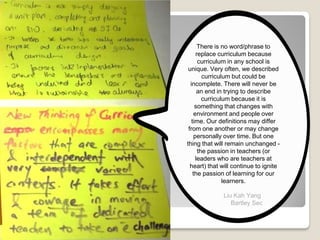 - Curriculum is not simply designing
a unit plan, completing and planning
and diseases and goals
of curriculum design
- It factors
ensure the
being understood and clear and
what is sustainable
New Thinking of Curric
encompasses many
factors that are complex
& interdependent with
very complex varied
contexts. It takes effort
& courage in moving
a team of dedicated
teacher to take on a challenge
There is no word/phrase to
replace curriculum because
curriculum in any school is
unique. Very often, we described
curriculum but could be
incomplete. There will never be
an end in trying to describe
curriculum because it is
something that changes with
environment and people over
time. Our definitions may differ
from one another or may change
personally over time. But one
thing that will remain unchanged -
the passion in teachers (or
leaders who are teachers at
heart) that will continue to ignite
the passion of learning for our
learners.
Liu Kah Yang
Bartley Sec